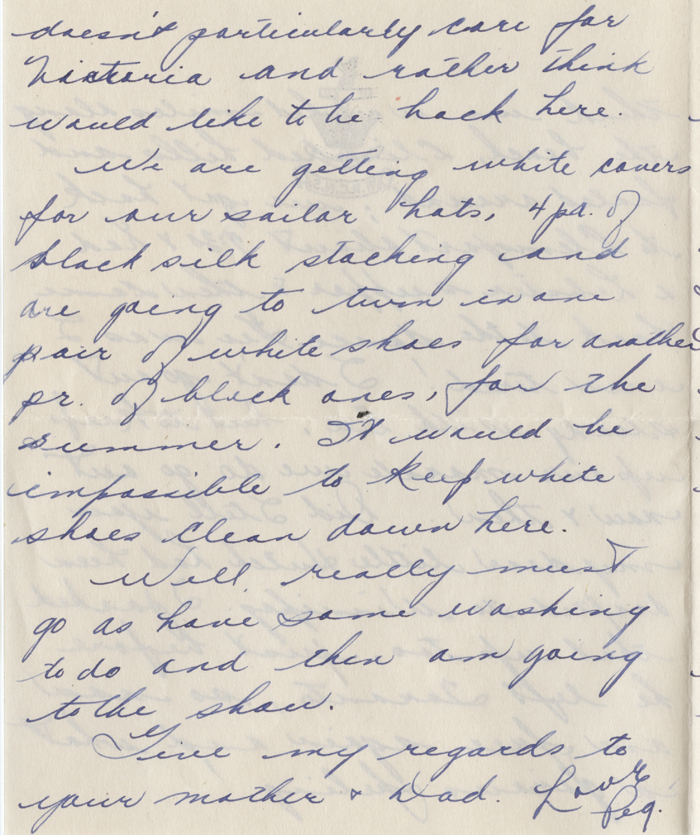 doesn't particularly care for
Victoria and rather think
would like to be back here.
We are getting white covers
for our sailor hats, 4 pr. of
black silk stocking and
are going to turn in one
pair of white shoes for another
pr. of black ones, for the
summer. It would be
impossible to keep white
shoes clean down here.
Well really must
go as have some washing
to do and then am going
to the show.
Give my regards to
your mother & Dad. Love
Peg.